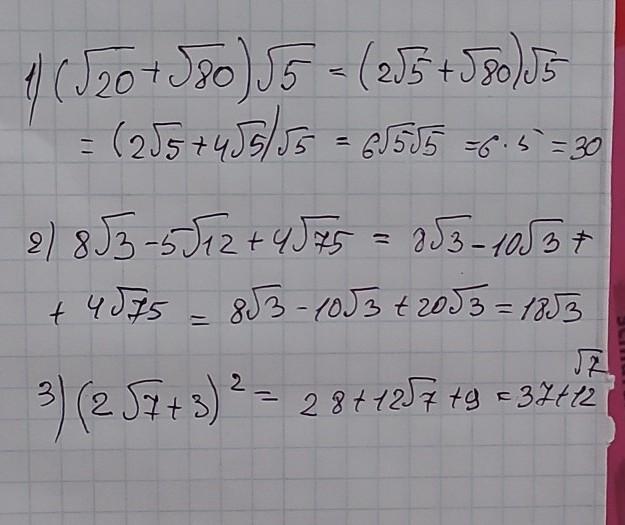 1) (√20 + √80) √5 = (2√5 + √80) √5
= (2√5 + 4√5) √5 = 6√5√5 = 6 · 5 = 30
2) 8√3 - 5√12 + 4√75 = 8√3 - 10√3 +
+ 4√75 = 8√3 - 10√3 + 20√3 = 18√3
3) (2√7 + 3)² = 28 + 12√7 + 9 = 37 + 12√7